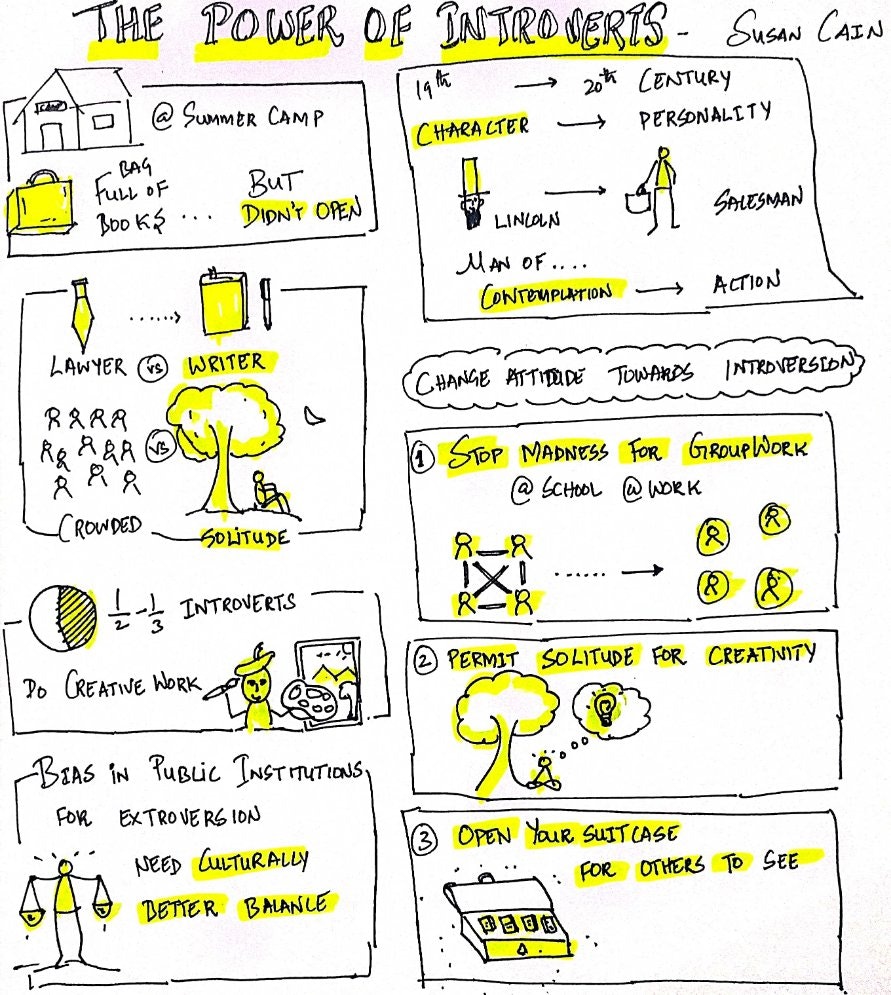 THE POWER OF INTROVERTS - SUSAN CAIN
CAMP
@ SUMMER CAMP
BAG
FULL OF
BOOKS ....
BUT
DIDN'T OPEN
LAWYER VS WRITER
VS
CROWDED
SOLITUDE
1/2 - 1/3 INTROVERTS
DO CREATIVE WORK
BIAS IN PUBLIC INSTITUTIONS
FOR EXTROVERSION
NEED CULTURALLY
BETTER BALANCE
19th → 20th CENTURY
CHARACTER → PERSONALITY
LINCOLN → SALESMAN
MAN OF ....
CONTEMPLATION → ACTION
CHANGE ATTITUDE TOWARDS INTROVERSION
1 STOP MADNESS FOR GROUPWORK
@ SCHOOL @ WORK
2 PERMIT SOLITUDE FOR CREATIVITY
3 OPEN YOUR SUITCASE
FOR OTHERS TO SEE